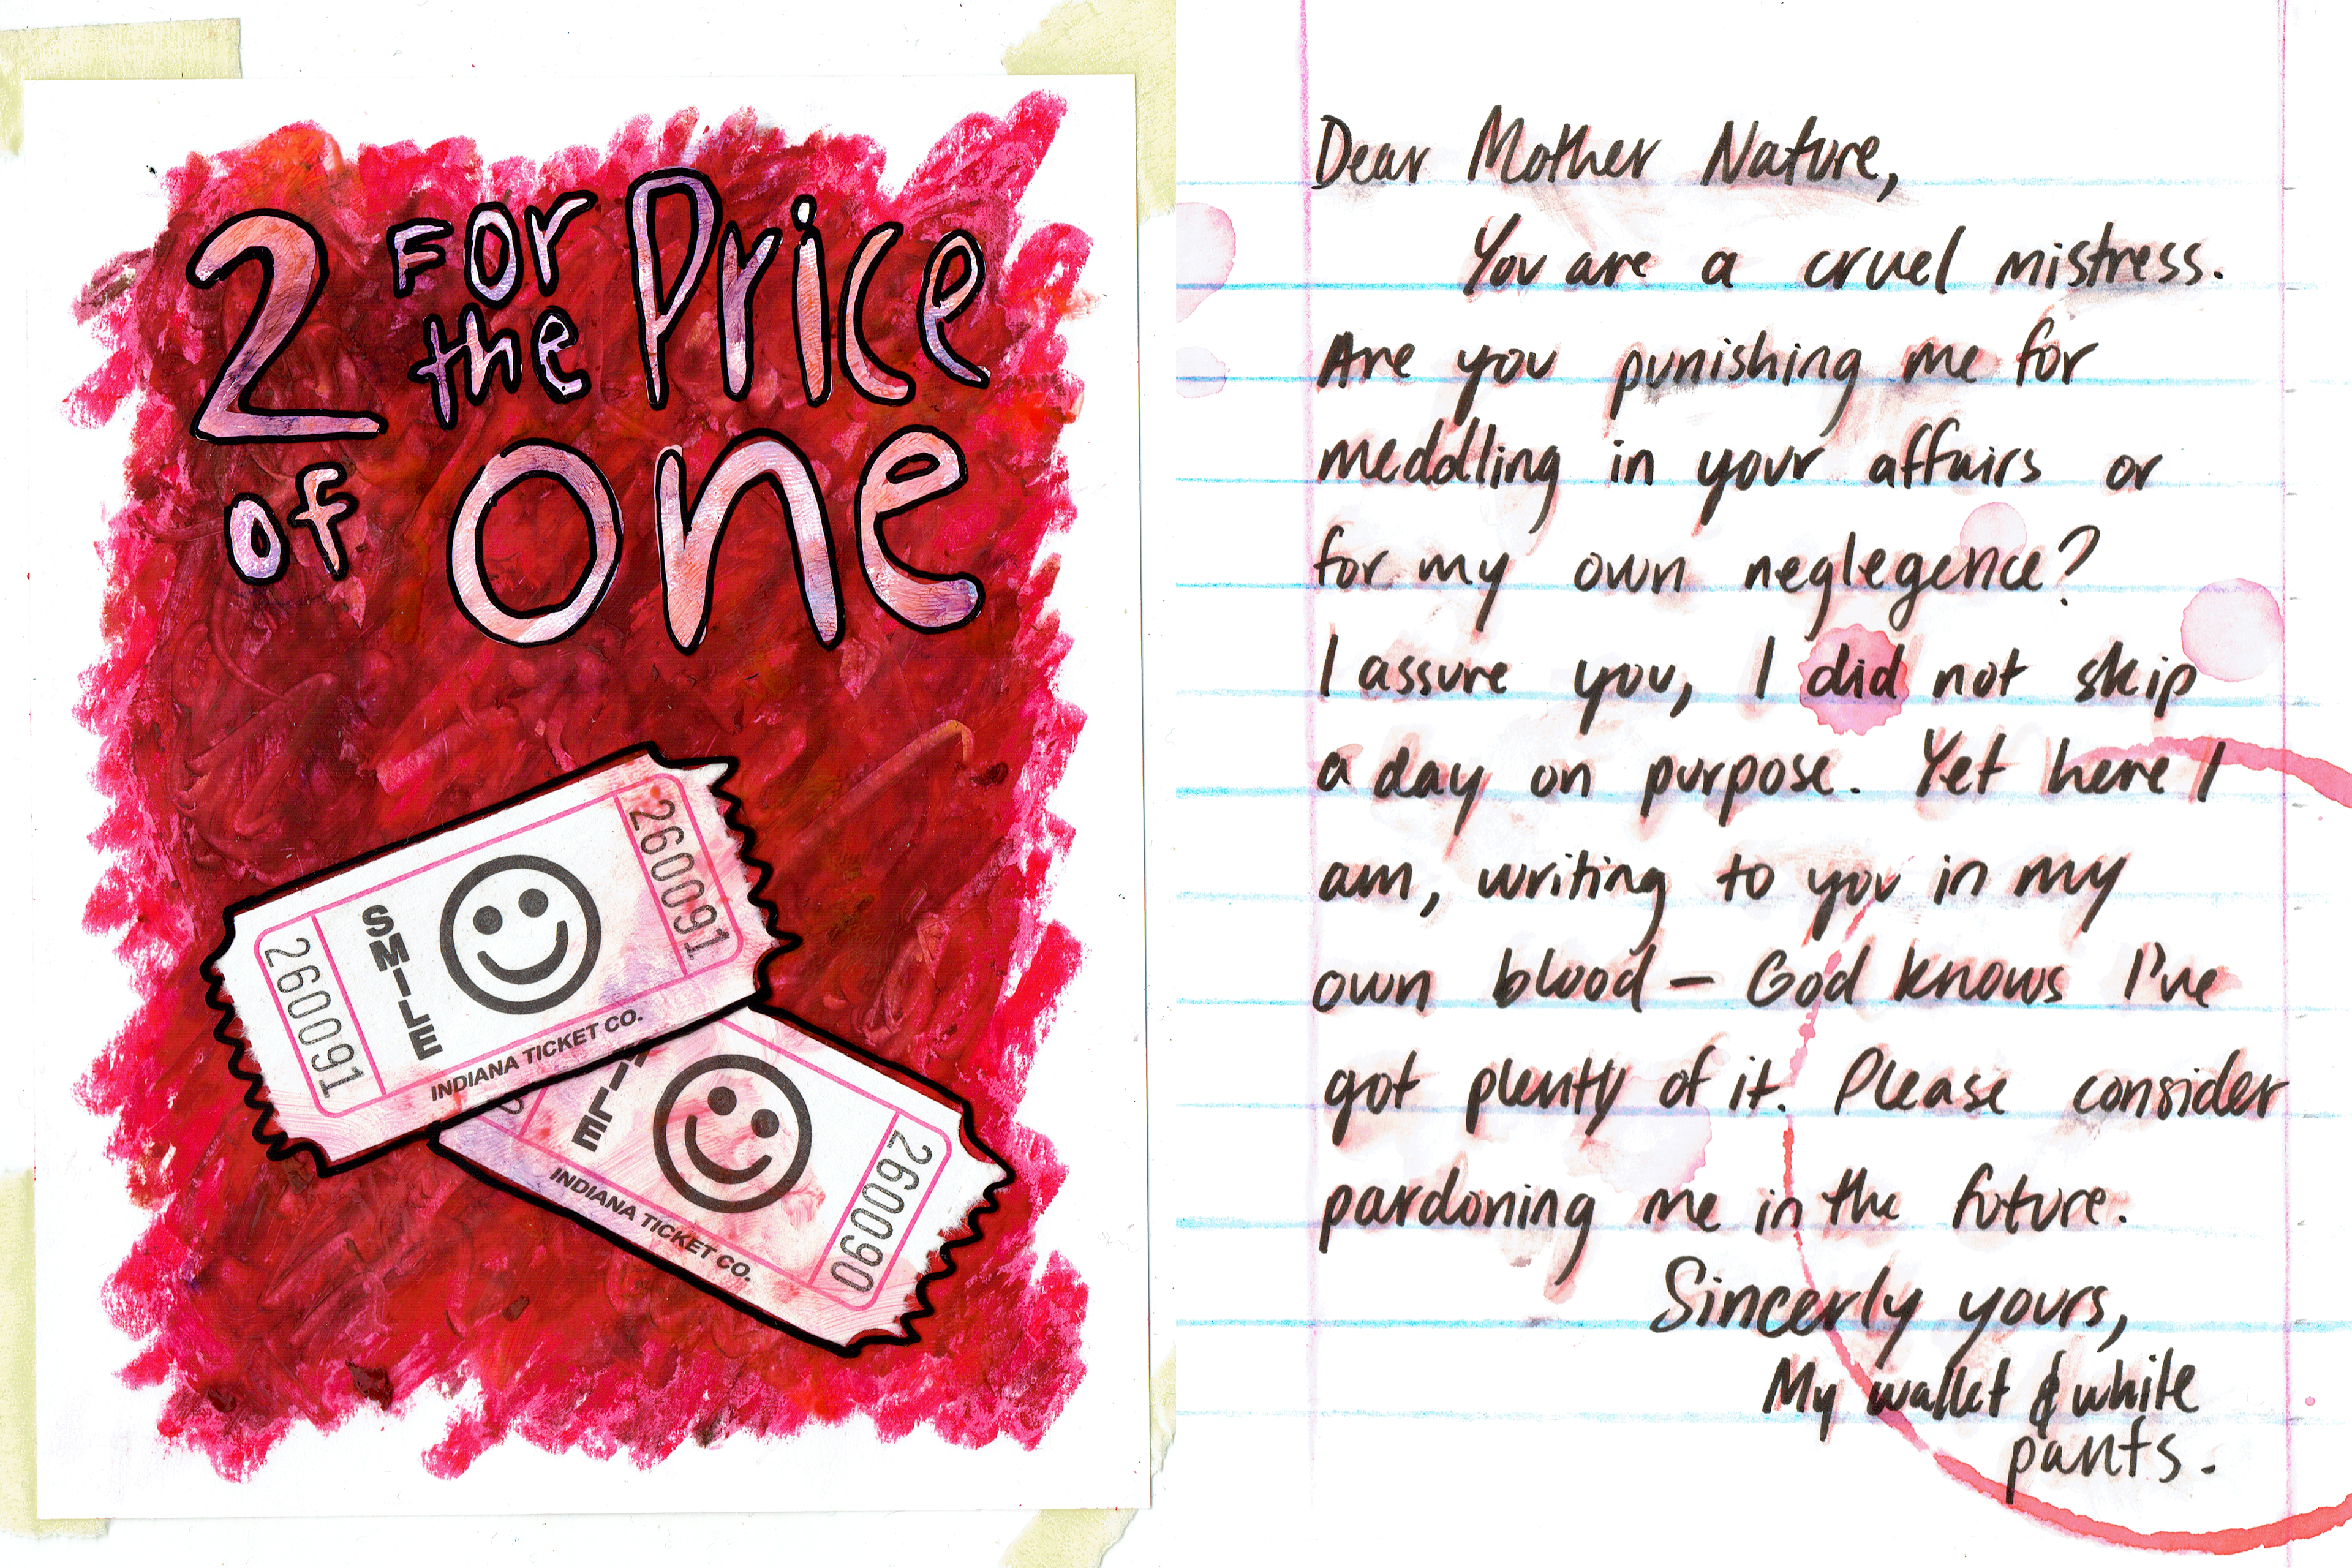 2 FOr the Price
of one
260091
SMILE
INDIANA TICKET CO.
260091
MILE
INDIANA TICKET CO.
260090
Dear Mother Nature,
You are a cruel mistress.
Are you punishing me for
meddling in your affairs or
for my own neglegence?
I assure you, I did not skip
a day on purpose. Yet here I
am, writing to you in my
own blood – God knows I've
got plenty of it. Please consider
pardoning me in the future.
Sincerly yours,
My wallet & white
pants.